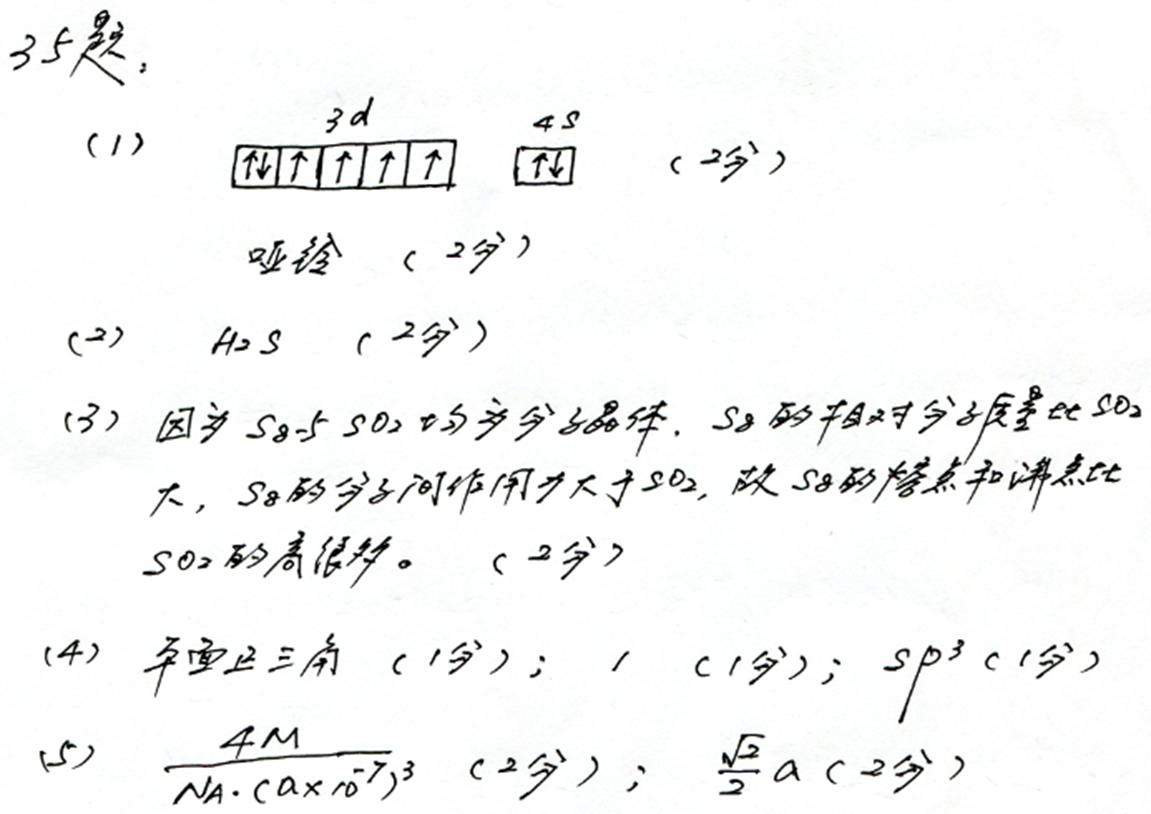 35题:
3d 4S
(1) ↑↓ ↑ ↑ ↑ ↑ ↑↓ (2分)
哑铃 (2分)
(2) H₂S (2分)
(3) 因为S₈与SO₂均为分子晶体, S₈的相对分子质量比SO₂
大, S₈的分子间作用力大于SO₂, 故S₈的熔点和沸点比
SO₂的高很多。 (2分)
(4) 平面正三角 (1分); 1 (1分); sp³ (1分)
(5) 4M/(NA·(a×10⁻⁷)³) (2分); √2/2 a (2分)